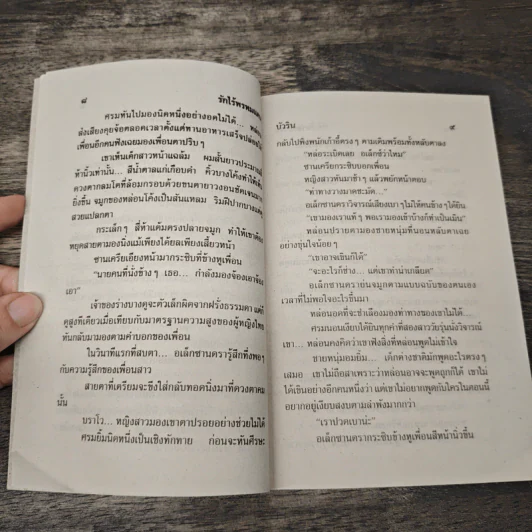 ๘
รักไร้พรหม
ศรมหันไปมองนิดหนึ่งอย่างอดไม่ได้...
ส่งเสียงคุยจ้อตลอดเวลาตั้งแต่ทานอาหารเสร็จ
เพื่อนอีกคนฟังเฉยมองเพื่อนตาปริบๆ
เขาเห็นเด็กสาวหน้าแฉล้ม ผมสั้นยาวประมาณ
ท้านิ้วเท่านั้น... สีน้ำตาลแก่เกือบดำ คิ้วบางโค้งทำให้
ดวงตากลมโตที่ล้อมกรอบด้วยขนตายาวงอนชัดเจน
ยิ่งขึ้น จมูกของหล่อนโค้งเป็นสันแหลม ริมฝีปากบาง
สวยแปลกตา
กระเล็กๆ สี่ห้าแต้มตรงปลายจมูก ทำให้เขาต้อง
หยุดสายตามองนิ่งแม้เพียงได้ยลเพียงเสี้ยวหน้า
ชานเครียเอียงหน้ามากระซิบที่ข้างหูเพื่อน
“นายคนที่นั่งข้างๆ เธอ... กำลังมองจ้องเอาจ้อง
เอา”
เจ้าของร่างบางดูจะตัวเล็กผิดจากฝรั่งธรรมดา แต่ก็
ดูสูงทีเดียวเมื่อเทียบกับมาตรฐานความสูงของผู้หญิงไทย
หันกลับมามองตามคำบอกของเพื่อน
ในวินาทีแรกที่สบตา... อเล็กซานดรารู้สึกทึ่งพอๆ
กับความรู้สึกของเพื่อนสาว
สายตาที่เตรียมจะขึงใส่กลับทอดนิ่งมาที่ดวงตาคม
นั้น
บราโว... หญิงสาวมองเขาตาปรอยอย่างช่วยไม่ได้
ศรมยิ้มนิดหนึ่งเป็นเชิงทักทาย ก่อนจะหันศีรษะ
บัวริน
๙
กลับไปพิงพนักเก้าอี้ตรงๆ ตามเดิมพร้อมทั้งหลับตาลง
“หล่อระเบิดเลย อเล็กซ์ว่าไหม”
ชานเครียกระซิบบอกเพื่อน
หญิงสาวหันมาช้าๆ แล้วพยักหน้าตอบ
“ท่าทางวางมาดชะมัด...”
อเล็กซานดราวิจารณ์เสียงเบาๆ ไม่ให้คนข้างๆ ได้ยิน
“เขามองเราแท้ๆ พอเรามองเข้าบ้างก็ทำเป็นเมิน”
หล่อนปรายตามองชายหนุ่มที่นอนหลับตาเลย
อย่างขุ่นใจน้อยๆ
“เขาอาจเขินก็ได้”
“จะอะไรก็ช่าง... แต่เขาท่าน่าเกลียด”
อเล็กซานดราย่นจมูกตามแบบฉบับของตนเอง
เวลาที่ไม่พอใจอะไรขึ้นมา
หล่อนอดที่จะชำเลืองมองท่าทางของเขาไม่ได้...
ศรมนอนเงียบได้ยินทุกคำที่สองสาววัยรุ่นนั่งวิจารณ์
เขา... หล่อนคงคิดว่าเขาฟังสิ่งที่หล่อนพูดไม่เข้าใจ
ชายหนุ่มอมยิ้ม... เด็กต่างชาติมักพูดอะไรตรงๆ
เสมอ เขาไม่ถือสาเพราะว่าหล่อนอาจจะพูดถูกก็ได้ เขาไม่
ได้เขินอย่างอีกคนหนึ่งว่า แต่เขาไม่อยากพูดกับใครในตอนนี้
อยากอยู่เงียบสงบตามลำพังมากกว่า
“เราปวดเบาน่ะ”
อเล็กซานดรากระซิบข้างหูเพื่อนสีหน้านิ่วขึ้น